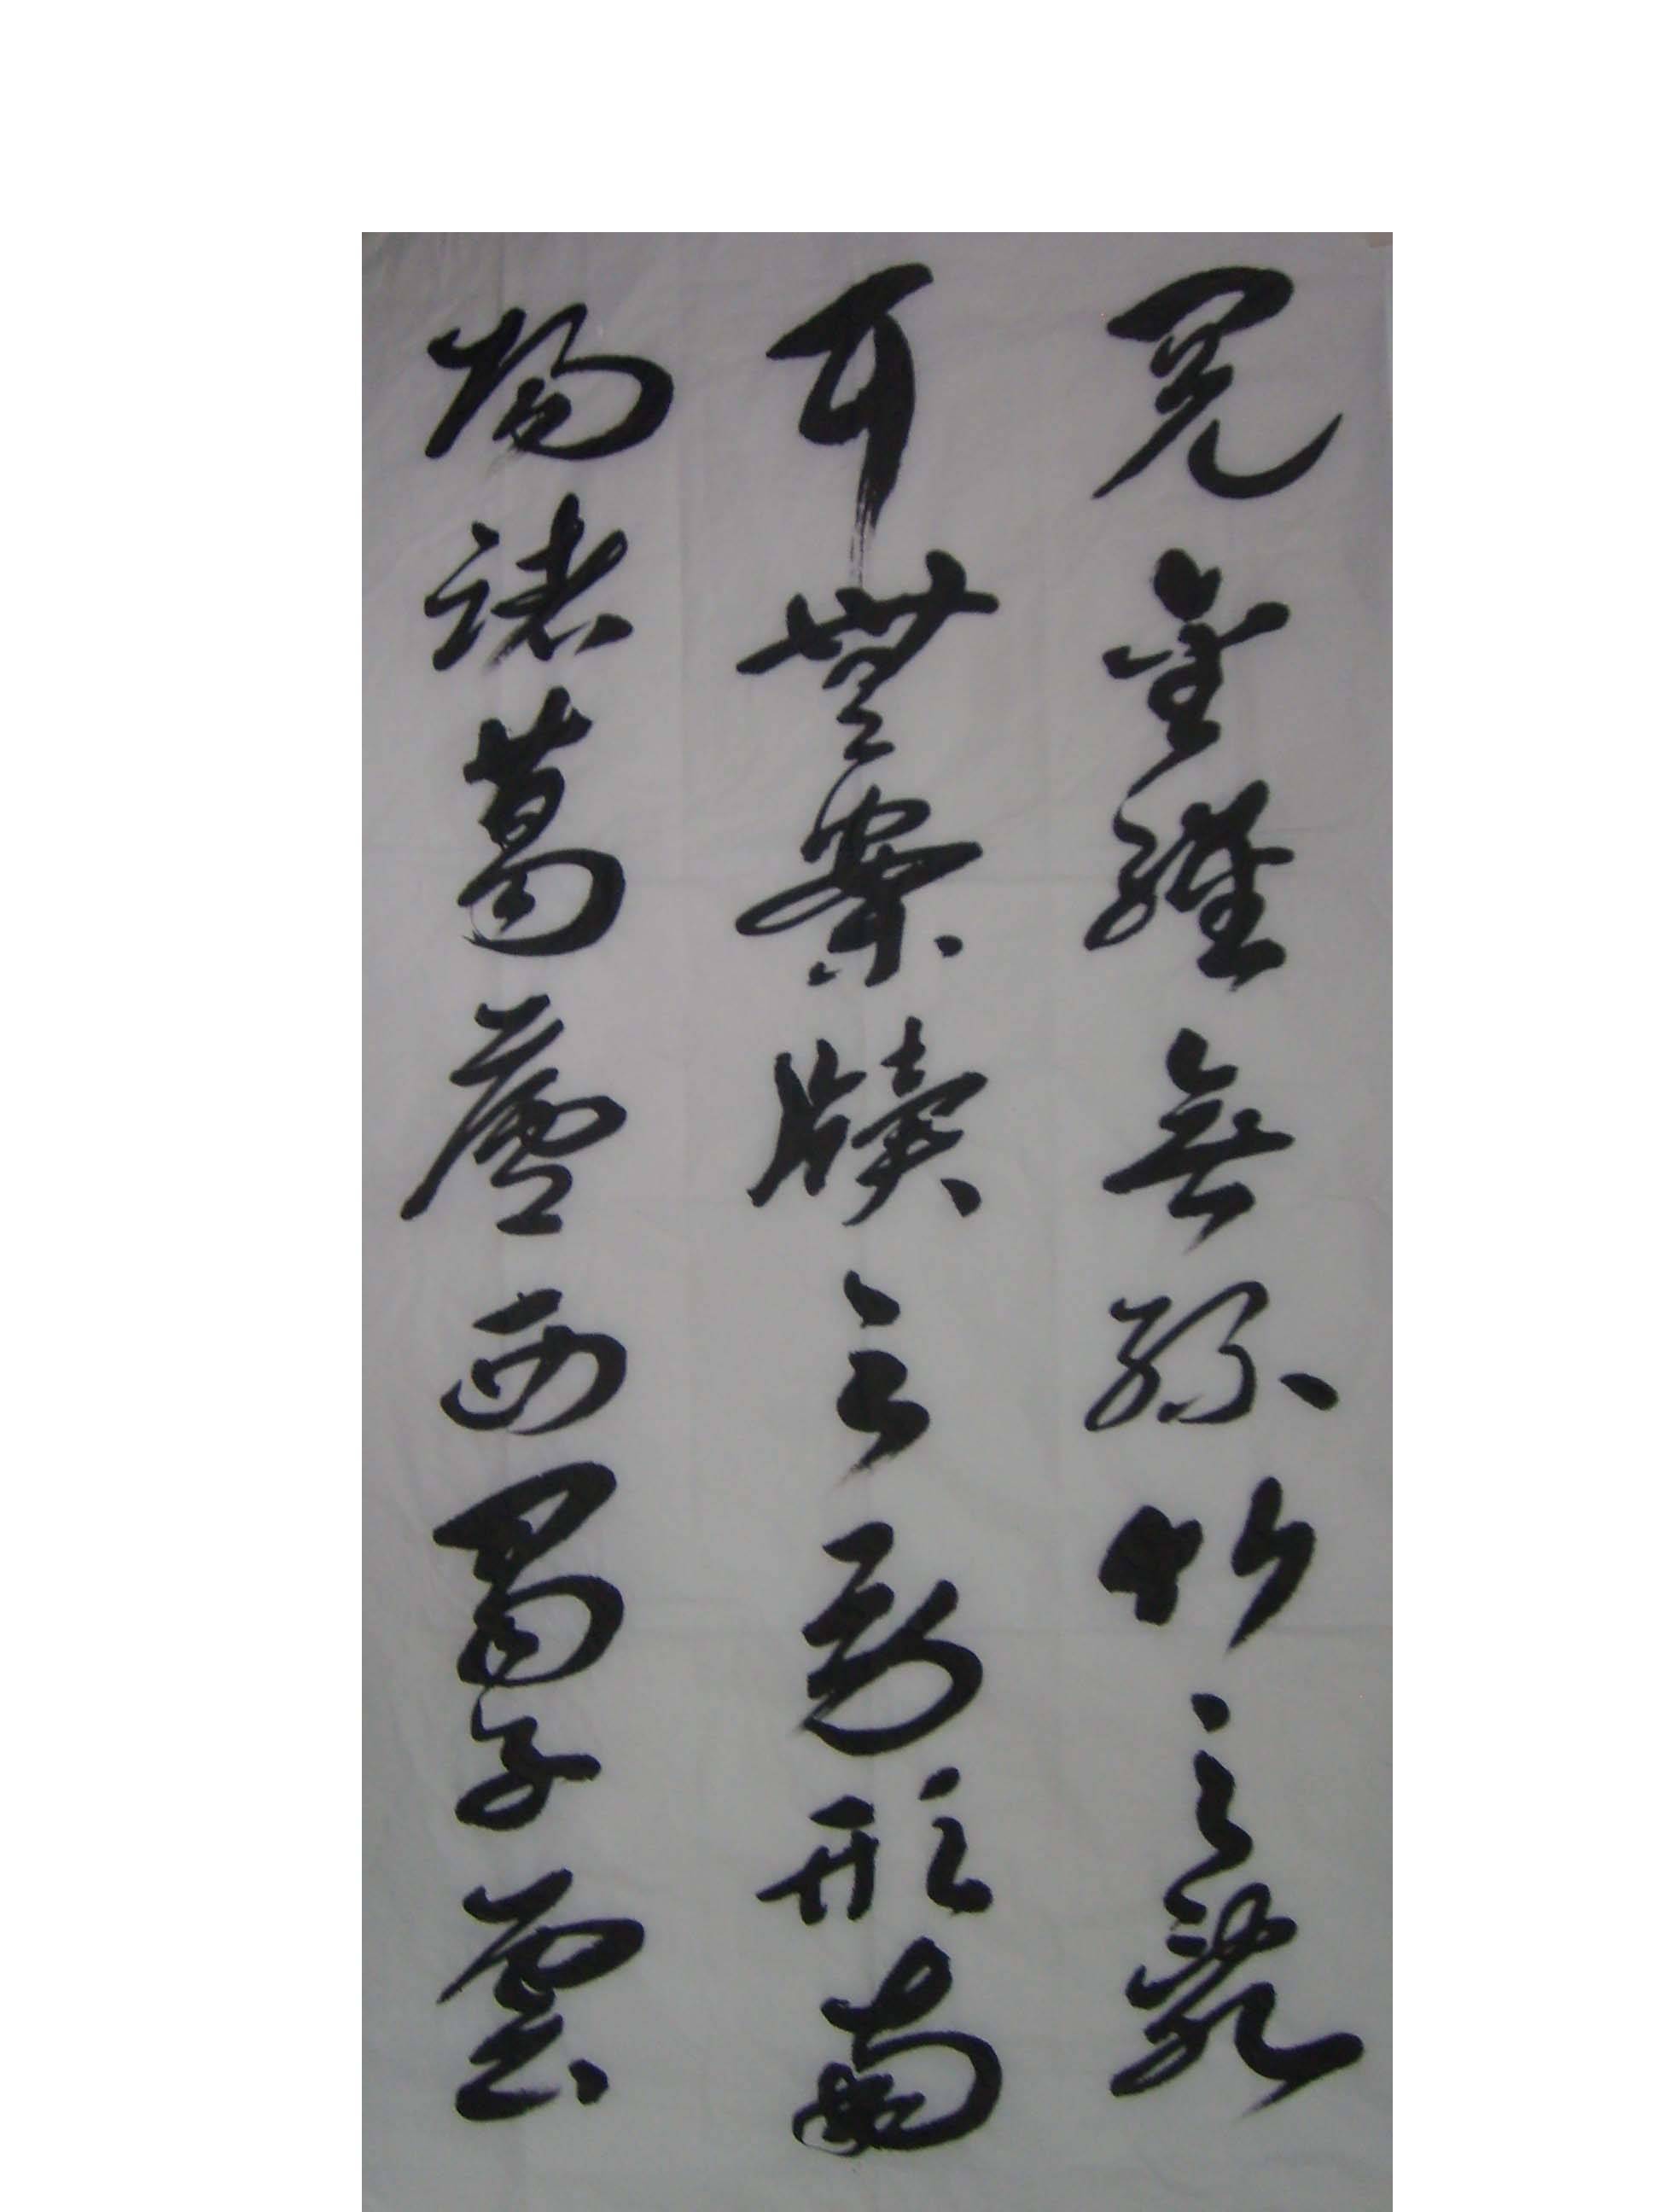 閱金經無絲竹之亂
耳無案牘之勞形南
陽諸葛廬西蜀子雲